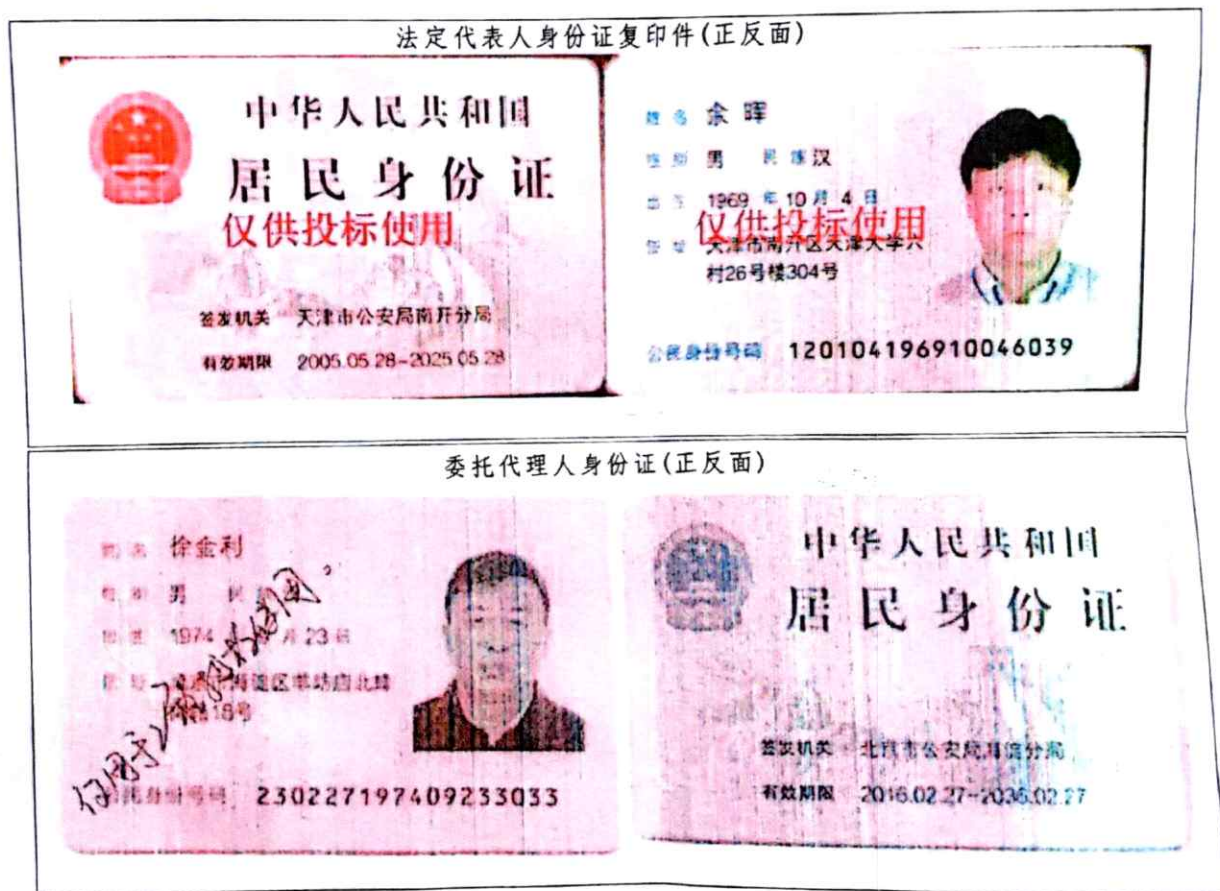 法定代表人身份证复印件(正反面)
中华人民共和国
居民身份证
仅供投标使用
签发机关 天津市公安局南开分局
有效期限 2005.05.28-2025.05.28
姓名 余晖
性别 男 民族汉
出生 1969年10月4日
仅供投标使用
住址 天津市南开区天津大学六
村26号楼304号
公民身份号码 120104196910046039
委托代理人身份证(正反面)
姓名 徐金利
性别 男 民
1974 月23日
海淀区羊坊店北蜂
18号
仅用于
身份号码 230227197409233033
中华人民共和国
居民身份证
签发机关 北京市公安局海淀分局
有效期限 2016.02.27-2036.02.27